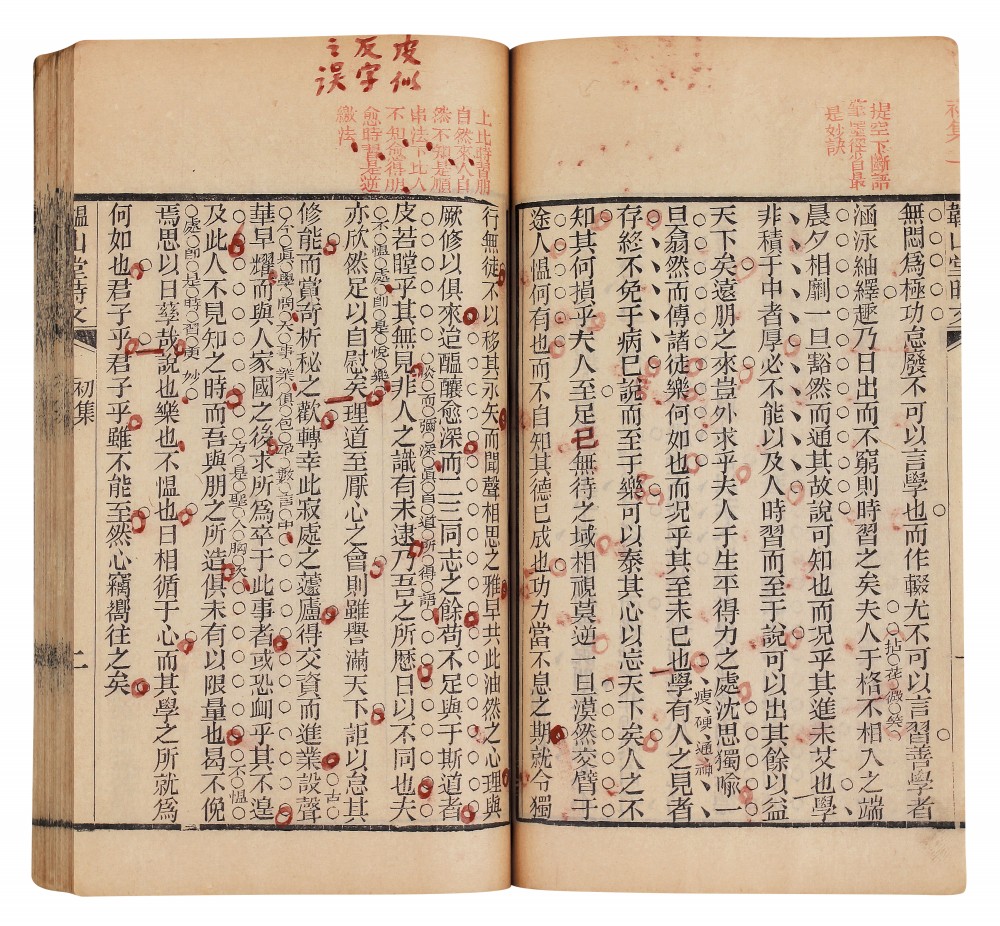 韞山堂時文
初集一
提空下斷語
筆墨徑省最
是妙訣
無悶為極功怠廢不可以言學也而作輟尤不可以言習善學者
拈花微笑
涵泳紬繹趣乃日出而不窮則時習之矣夫人于格不相入之端
晨夕相劘一旦豁然而通其故說可知也而況乎其進未艾也學
非積于中者厚必不能以及人時習而至于說可以出其餘以益
天下矣遠朋之來豈外求乎夫人于生平得力之處沈思獨喻一
瘦硬通神
旦翕然而傳諸徒樂何如也而況乎其至未已也學有人之見者
存終不免于病已說而至于樂可以泰其心以忘天下矣人之不
知其何損乎夫人至足已無待之域相視莫逆一旦漠然交臂于
途人慍何有也而不自知其德已成也功力當不息之期就令獨
皮似
反字
之误
上比時習朋
自然來人自
然不知是順
串法下比人
不知愈得朋
愈時習是逆
繳法
行無徒不以移其永矢而聞聲相思之雅早共此油然之心理與
厥修以俱來迨醞釀愈深而二三同志之餘茍不足與于斯道者
淡而彌深真自道所得語
皮若瞠乎其無見非人之識有未逮乃吾之所歷日以不同也夫
不慍處即是悅樂
亦欣然足以自慰矣理道至厭心之會則雖譽滿天下詎以怠其
古
修能而賞奇析秘之歡轉幸此寂處之蘧廬得交資而進業設聲
今真學問大事業俱包數言中
華早耀而與人家國之後求所為卒于此事者或恐卹乎其不遑
方是聖人胸次
不慍
及此人不見知之時而吾與朋之所造俱未有以限量也曷不俛
處即是時習更妙
焉思以日孳哉說也樂也不慍也日相循于心而其學之所就為
何如也君子乎君子乎雖不能至然心竊嚮往之矣
韞山堂時文
初集
二